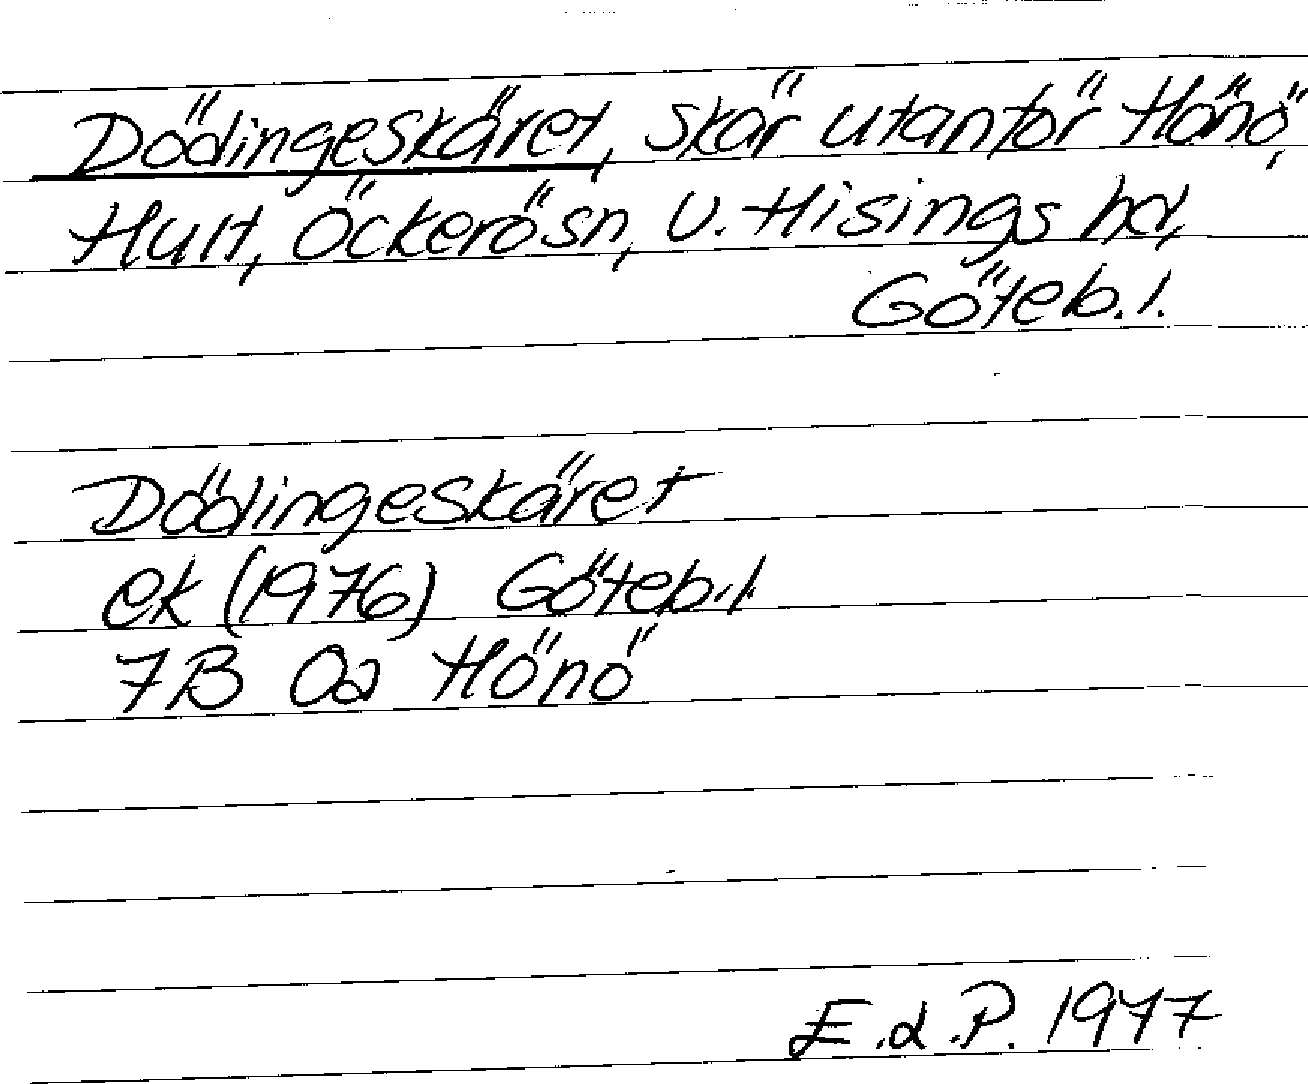 Dödingeskäret, skär utanför Hönö,
Hult, Öckerö sn, V. Hisings hd,
Göteb. l.
Dödingeskäret
ek (1976) Göteb. l.
7B 0a Hönö
E.d.P. 1977